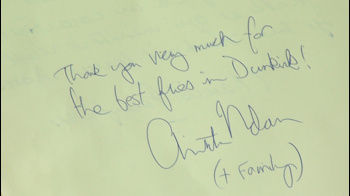 Thank you very much for
the best fries in Dunkirk!
(+ Family)